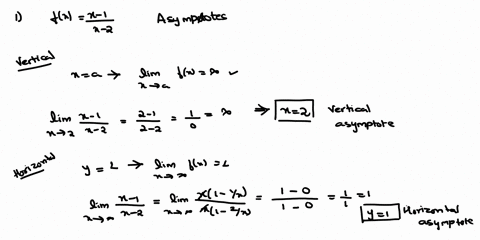 1) f(x) = x-1/x-2 Asymptotes
Vertical
x = a → lim x→a f(x) = ∞ ✓
lim x→2 x-1/x-2 = 2-1/2-2 = 1/0 = ∞ ⇒ x=2 Vertical asymptote
Horizontal
y = L → lim x→∞ f(x) = L
lim x→∞ x-1/x-2 = lim x→∞ x(1-1/x)/x(1-2/x) = 1-0/1-0 = 1/1 = 1
y=1 Horizontal asymptote